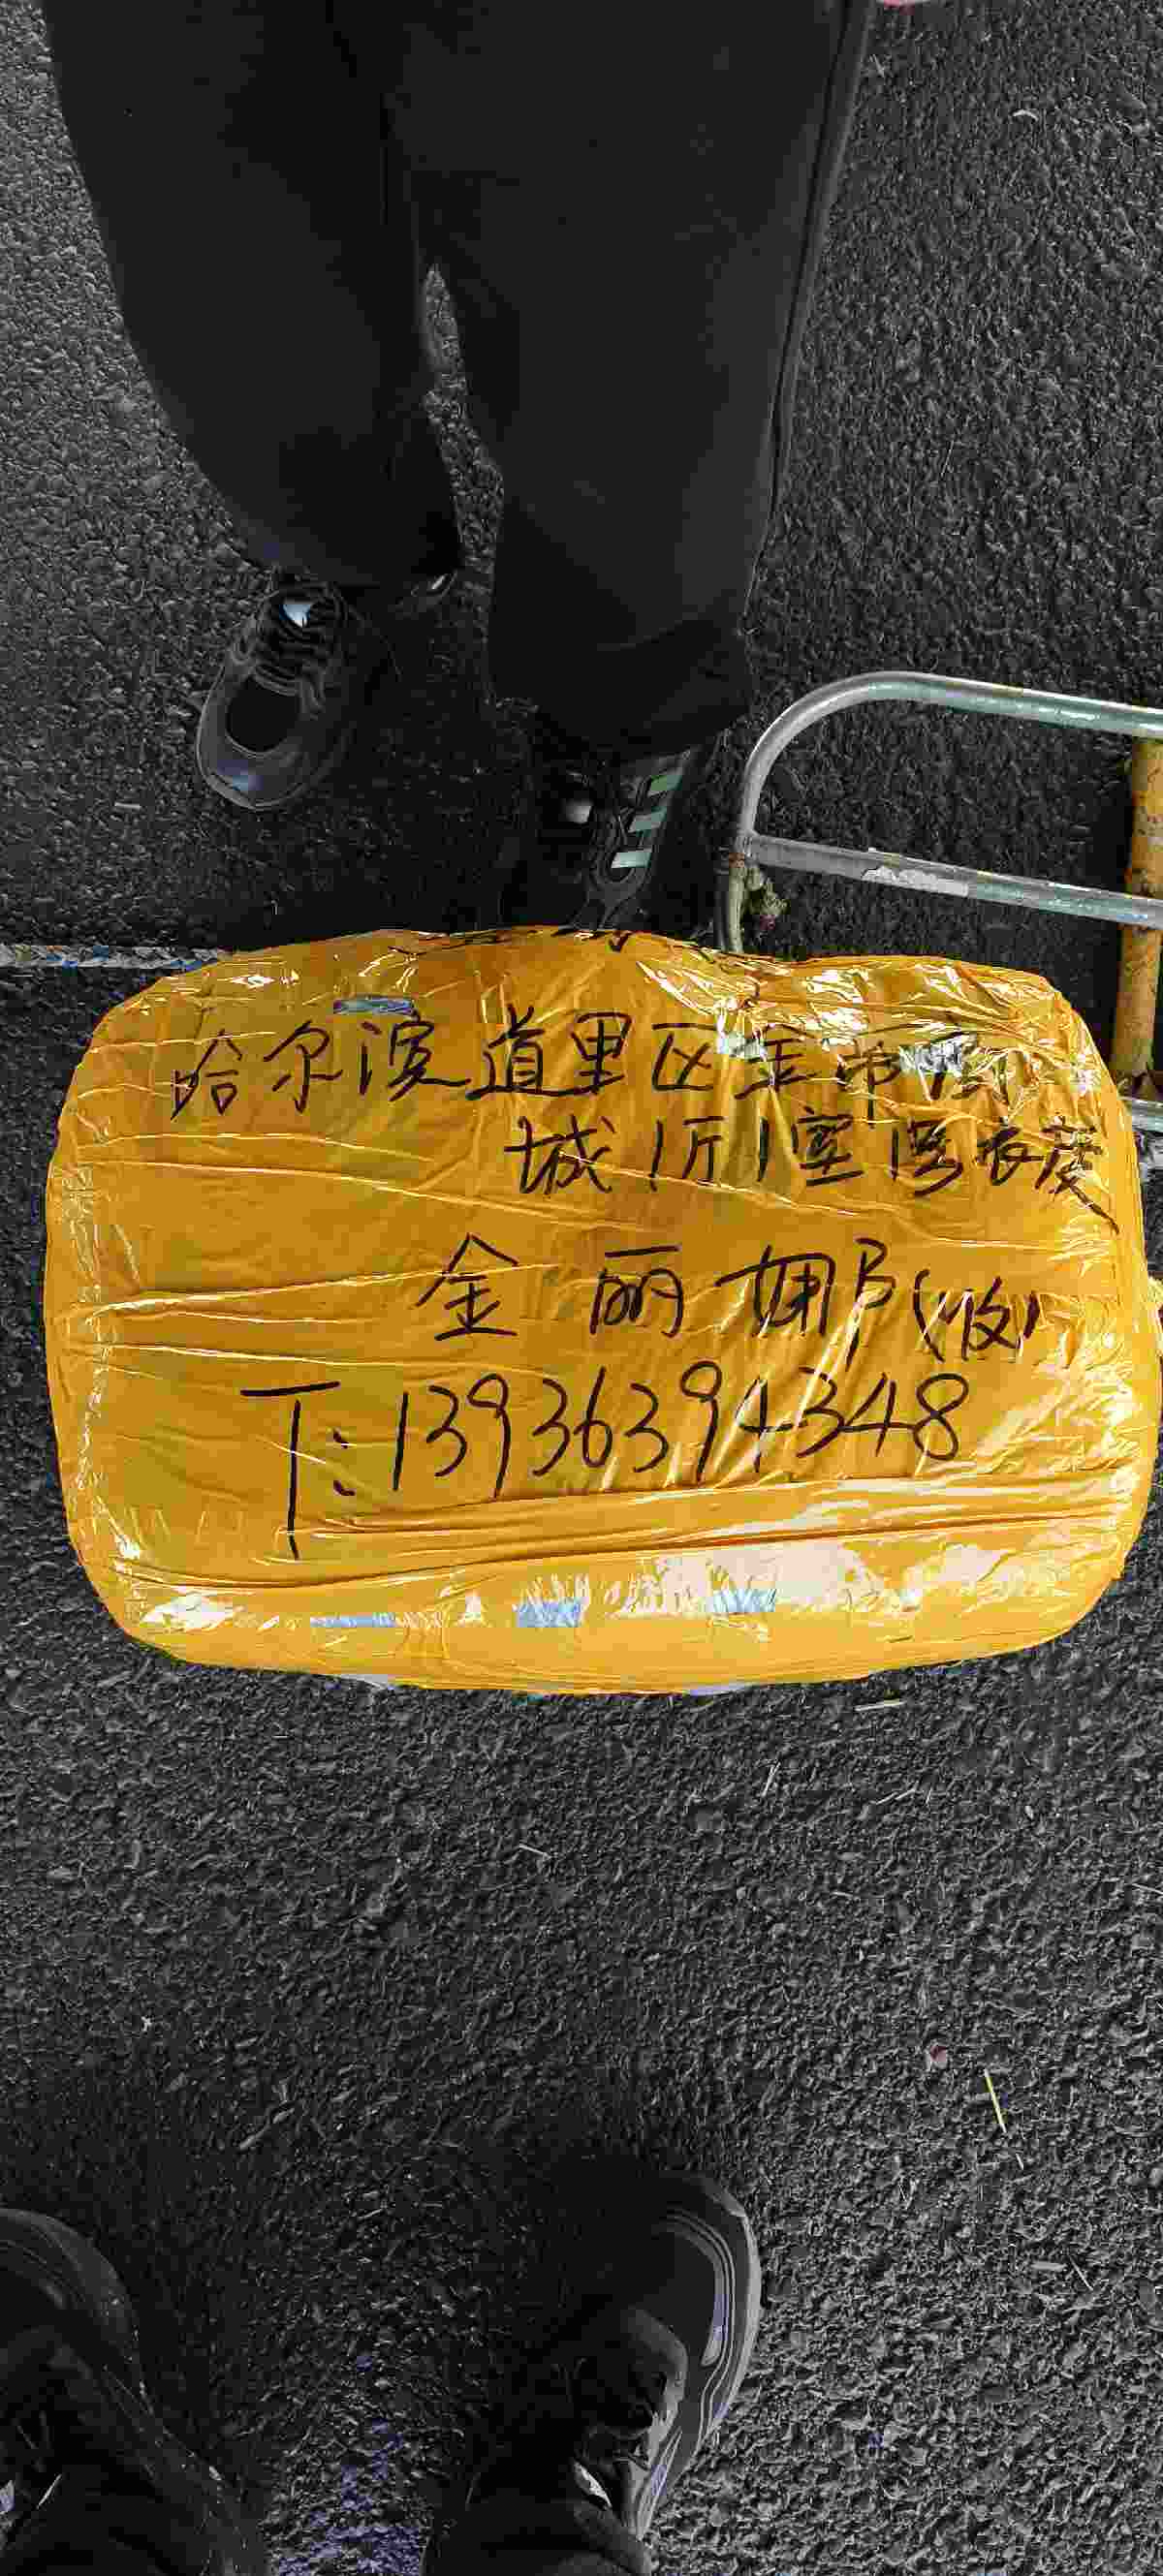 哈尔滨道里区金帝
城1厅1室
金丽娜(收)
T:13936394348